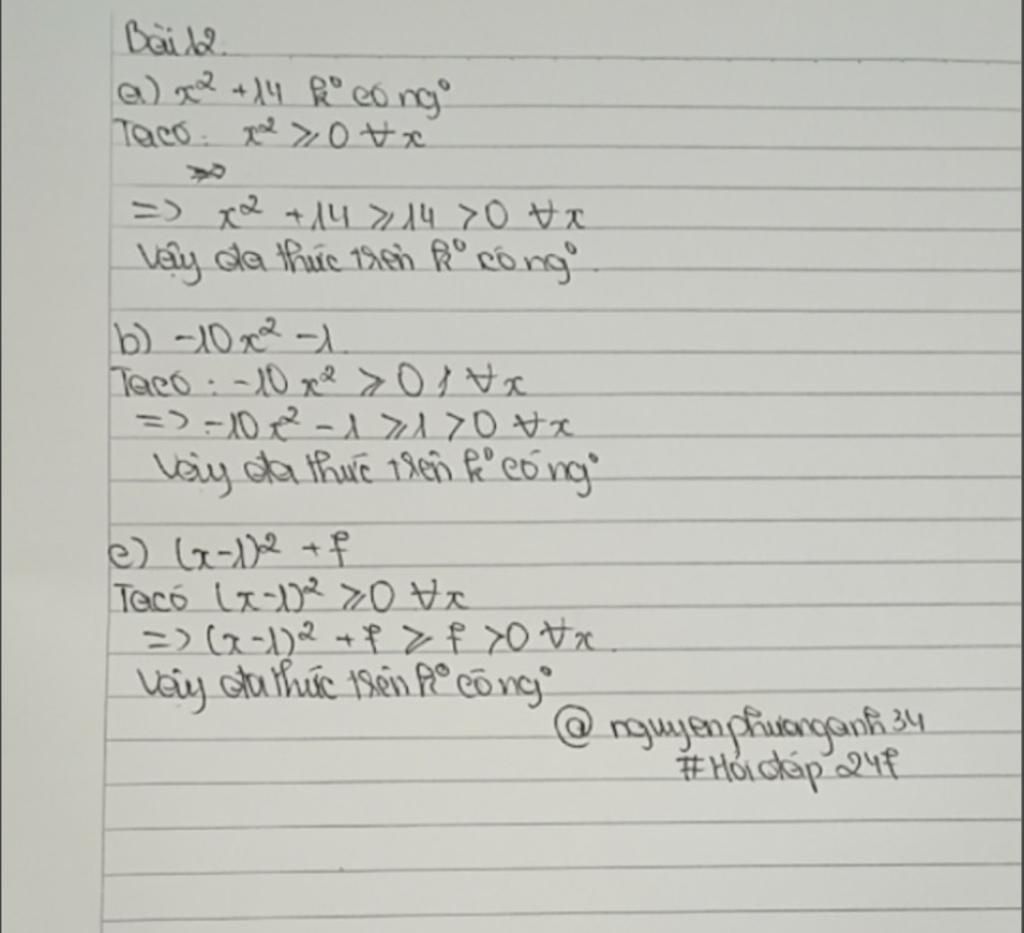 Bài 12.
a) x² + 14 k° có ng°
Ta có: x² ≥ 0 ∀x
=> x² + 14 ≥ 14 > 0 ∀x
Vậy đa thức trên k° có ng°.
b) -10x² - 1.
Ta có: -10x² ≥ 0 ∀x
=> -10x² - 1 ≥ 1 > 0 ∀x
Vậy đa thức trên k° có ng°
c) (x-1)² + 7
Ta có (x-1)² ≥ 0 ∀x
=> (x-1)² + 7 ≥ 7 > 0 ∀x.
Vậy đa thức trên k° có ng°
@ nguyenphuonganh34
#Hỏi đáp 247